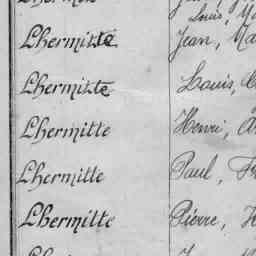 Louis, M
Lhermitte Jean, Ma
Lhermitte Louis,
Lhermitte Henri, A
Lhermitte Paul, Fr
Lhermitte Pierre,